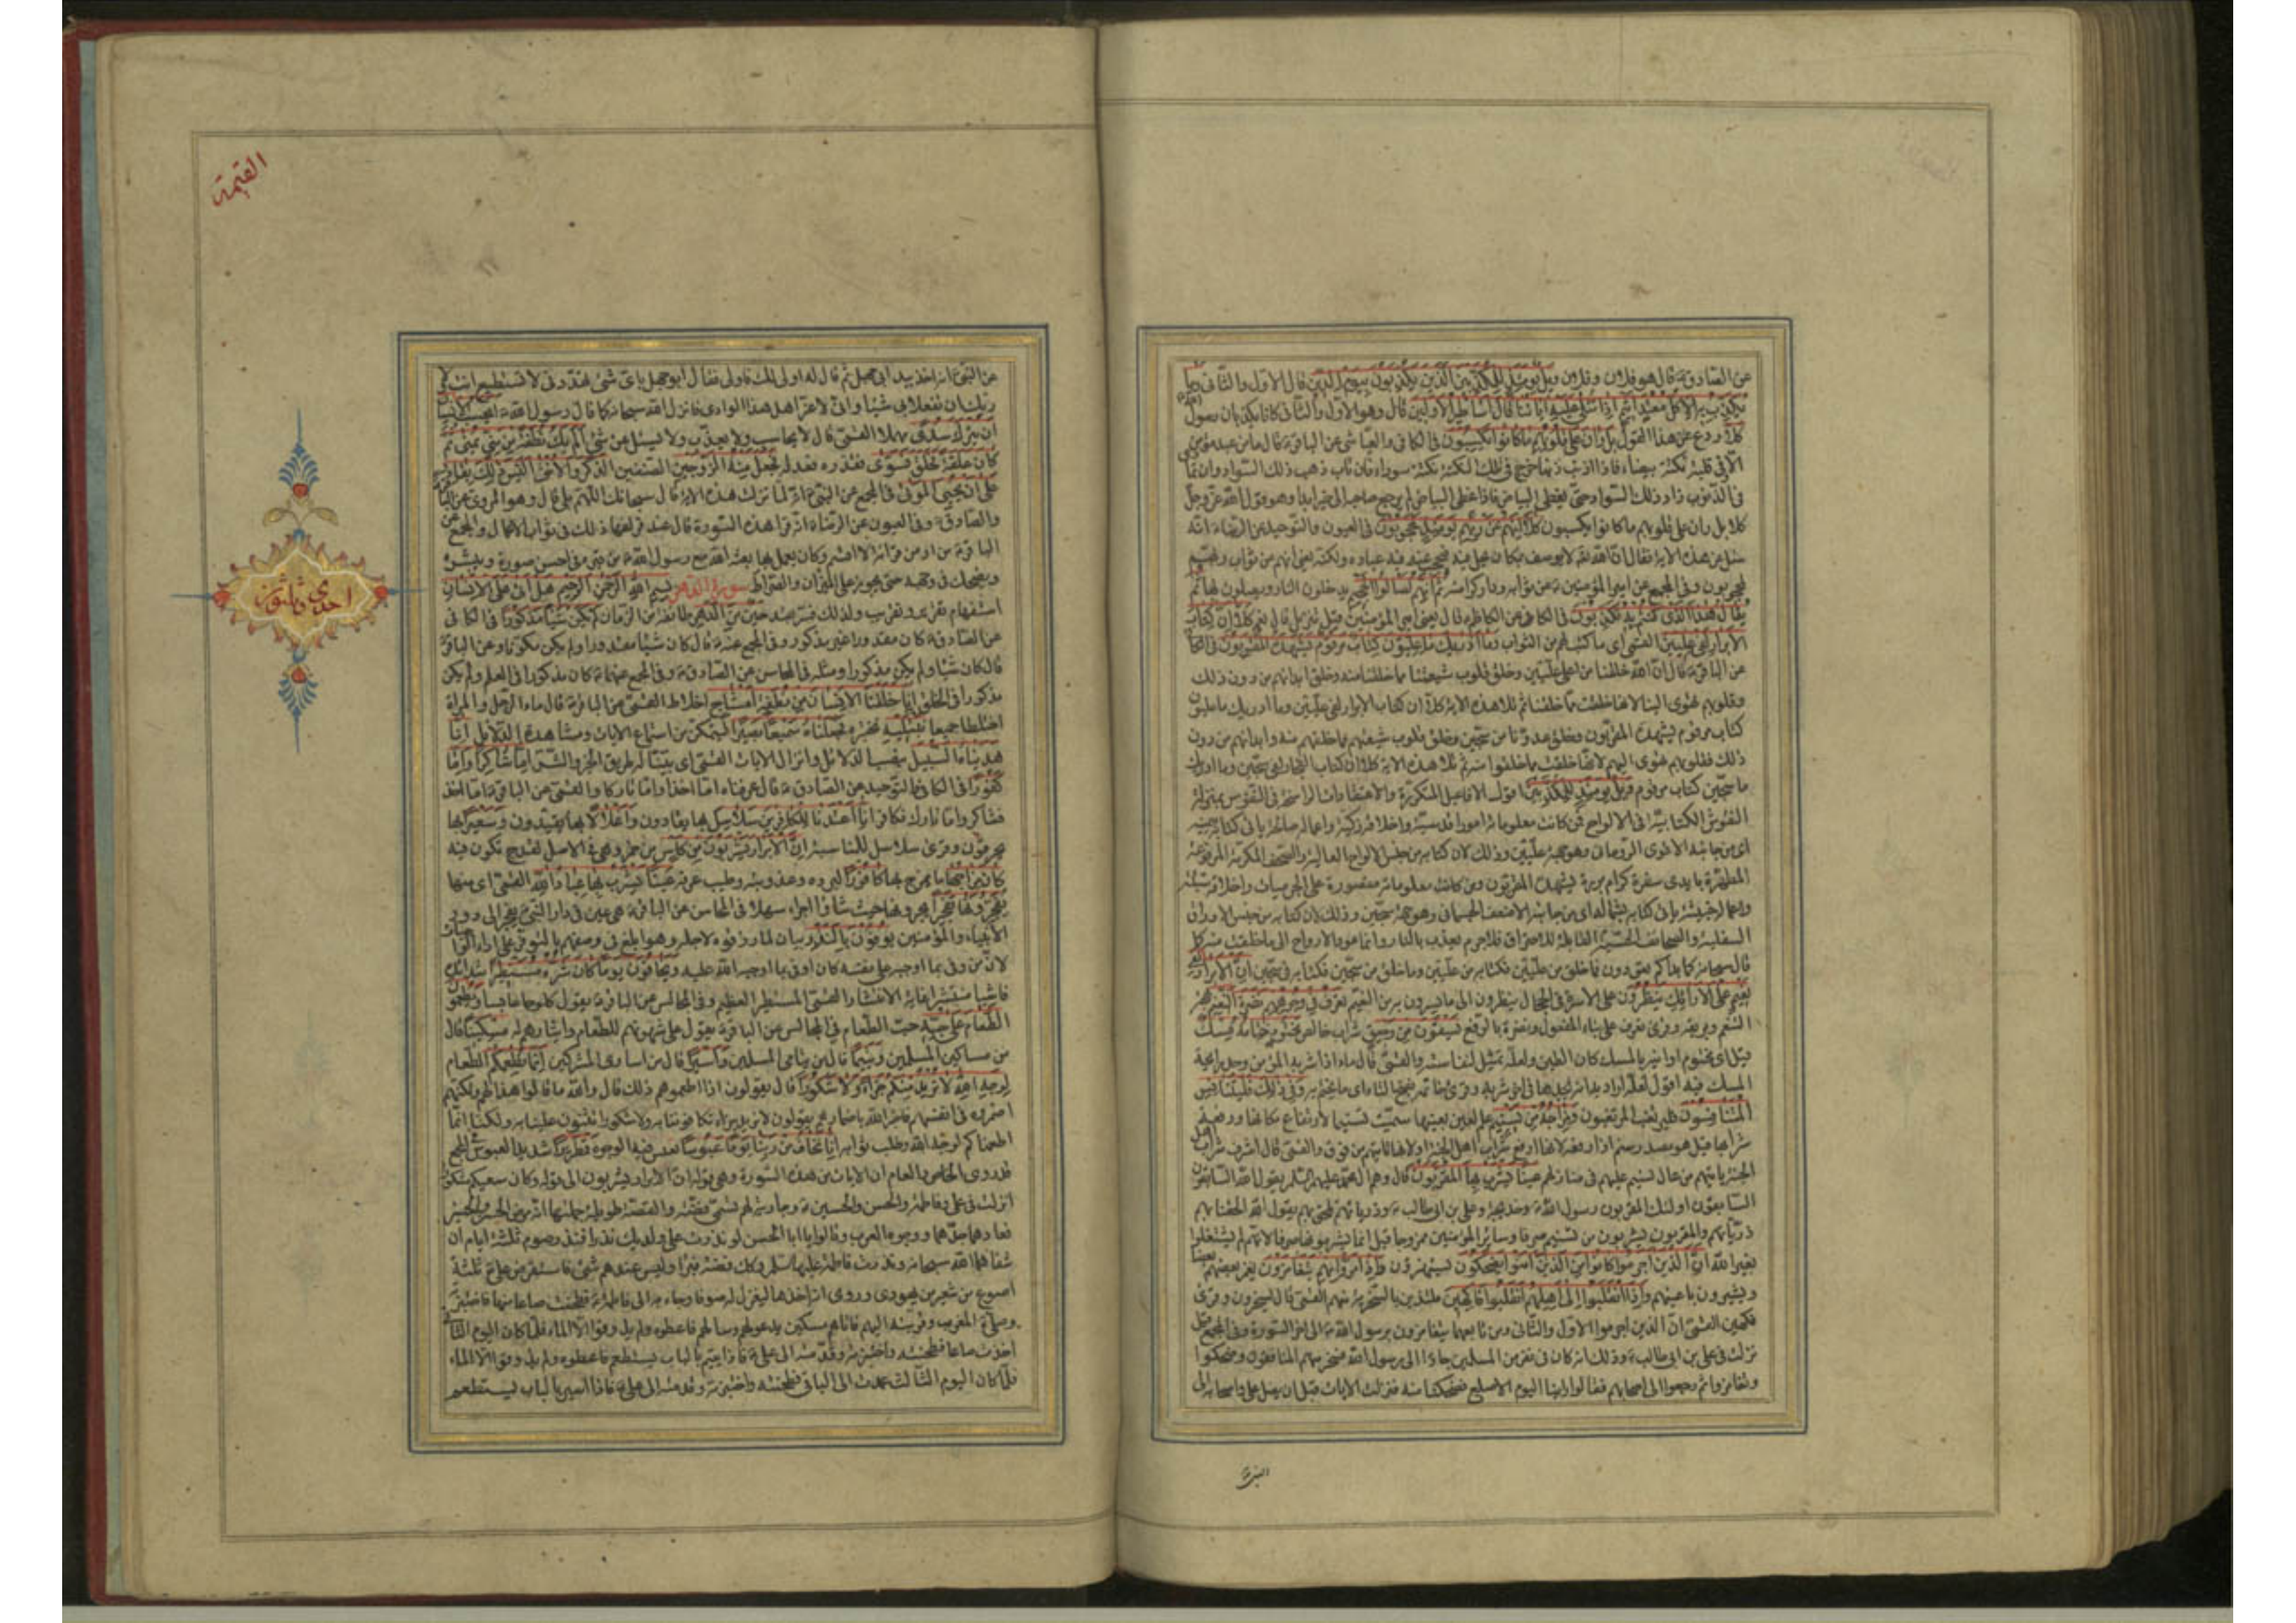 عن الصادق ع قال هو فلان وفلان ويل يومئذ للمكذبين الذين يكذبون بيوم الدين قال الاول والثاني وما
يكذب به الا كل معتد اثيم اذا تتلى عليه اياتنا قال اساطير الاولين قال وهو الاول والثاني كانا يكذبان رسول
كلا ردع عن هذا القول بل ران على قلوبهم ما كانوا يكسبون في الكافي والعياشي عن الباقر ع قال ما من عبد مؤمن
الا في قلبه نكتة بيضاء فاذا اذنب ذنبا خرج في تلك النكتة نكتة سوداء فان تاب ذهب ذلك السواد وان تمادى
في الذنوب زاد ذلك السواد حتى يغطي البياض فاذا غطى البياض لم يرجع صاحبه الى خير ابدا وهو قول الله عز وجل
كلا بل ران على قلوبهم ما كانوا يكسبون كلا انهم عن ربهم يومئذ لمحجوبون في العيون والتوحيد عن الرضا ع انه
سئل عن هذه الاية فقال ان الله تعالى لا يوصف بمكان يحل فيه فيحجب عنه فيه عباده ولكنه يعني انهم عن ثواب ربهم
لمحجوبون وفي المجمع عن امير المؤمنين ع عن ثوابه ودار كرامته ثم انهم لصالوا الجحيم يدخلون النار ويصلون بها ثم
يقال هذا الذي كنتم به تكذبون في الكافي عن الكاظم ع قال يعني امير المؤمنين قيل تنزيل قال نعم كلا ان كتاب
الابرار لفي عليين القمي اي ما كتب لهم من الثواب وما ادريك ما عليون كتاب مرقوم يشهده المقربون في الكافي
عن الباقر ع قال ان الله خلقنا من اعلى عليين وخلق قلوب شيعتنا مما خلقنا منه وخلق ابدانهم من دون ذلك
وقلوبهم تهوى الينا لانها خلقت مما خلقنا ثم تلا هذه الاية كلا ان كتاب الابرار لفي عليين وما ادريك ما عليون
كتاب مرقوم يشهده المقربون وخلق عدونا من سجين وخلق قلوب شيعتهم مما خلقهم منه وابدانهم من دون
ذلك فقلوبهم تهوى اليهم لانها خلقت مما خلقوا منه ثم تلا هذه الاية كلا ان كتاب الفجار لفي سجين وما ادريك
ما سجين كتاب مرقوم ويل يومئذ للمكذبين اقول الافاعيل المتكررة والاعتقادات الراسخة في النفوس بمنزلة
النقوش الكتابية في الالواح فمن كانت معلوماته امورا قدسية واخلاقه زكية واعماله صالحة ياتي كتابه بيمينه
اي من جانبه الاقوى الروحاني وهو جهة عليين وذلك لان كتابه من جنس الالواح العالية والصحف المكرمة المرفوعة
المطهرة بايدي سفرة كرام بررة يشهده المقربون ومن كانت معلوماته مقصورة على الجرميات واخلاقه سيئة
واعماله خبيثة ياتي كتابه بشماله اي من جانبه الاضعف الجسماني وهو جهة سجين وذلك لان كتابه من جنس الاوراق
السفلية والصحائف الحسية القابلة للاحتراق فلا جرم يعذب بالنار وانما عود الارواح الى ما خلقت منه كما
قال سبحانه كما بداكم تعودون فما خلق من عليين فكتابه من عليين وما خلق من سجين فكتابه في سجين ان الابرار لفي
نعيم على الارائك ينظرون على الاسرة في الحجال ينظرون الى ما يسرون به من النعيم تعرف في وجوههم نضرة النعيم بهجة
التنعم وبريقه وقرئ تعرف على بناء المفعول ونضرة بالرفع يسقون من رحيق شراب خالص مختوم ختامه مسك
قيل اي مختوم اوانيه بالمسك مكان الطين ولعله تمثيل لنفاسته والقمي قال ماء اذا شربه المؤمن وجد رايحة
المسك فيه اقول لعله اراد به انه يجدها في اخر شربه وقرئ خاتمه بفتح التاء اي ما يختم به وفي ذلك فليتنافس
المتنافسون فليرتغب المرتغبون ومزاجه من تسنيم علم لعين بعينها سميت تسنيما لارتفاع مكانها او رفعة
شرابها قيل هو مصدر سنمه اذا رفعه لانها ارفع شراب اهل الجنة او لانها تاتيهم من فوق والقمي قال اشرف شراب اهل
الجنة ياتيهم من عال تسنيم عليهم في منازلهم عينا يشرب بها المقربون قال وهم ال محمد عليهم السلام يقول الله السابقون
السابقون اولئك المقربون رسول الله ص وخديجة وعلي بن ابي طالب ع وذرياتهم تلحق بهم يقول الله الحقنا بهم
ذرياتهم والمقربون يشربون من تسنيم صرفا وسائر المؤمنين ممزوجا قيل انما يشربونها صرفا لانهم لم يشتغلوا
بغير الله ان الذين اجرموا كانوا من الذين امنوا يضحكون يستهزؤن واذا مروا بهم يتغامزون يغمز بعضهم بعضا
ويشيرون باعينهم واذا انقلبوا الى اهلهم انقلبوا فاكهين ملتذين بالسخرية منهم القمي قال يسخرون وقرئ
فكهين القمي ان الذين اجرموا الاول والثاني ومن تابعهما يتغامزون برسول الله ص الى اخر السورة وفي المجمع قيل
نزلت في علي بن ابي طالب ع وذلك انه كان في نفر من المسلمين جاءوا الى رسول الله فسخر منهم المنافقون وضحكوا
وتغامزوا ثم رجعوا الى اصحابهم فقالوا راينا اليوم الاصلع فضحكنا منه فنزلت الايات قبل ان يصل علي واصحابه الى
النبي ص
القيمة
احدى وثلثون
عن النبي ص انه اخذ بيد ابي جهل ثم قال له اولى لك فاولى فقال ابو جهل باي شيء تهددني لا تستطيع انت ولا
ربك ان تفعلا بي شيئا واني لاعز اهل هذا الوادي فانزل الله سبحانه كما قال رسول الله ص ايحسب الانسان
ان يترك سدى مهملا القمي قال لا يحاسب ولا يعذب ولا يسئل عن شيء الم يك نطفة من مني يمنى ثم
كان علقة فخلق فسوى فقدره فعدله فجعل منه الزوجين الصنفين الذكر والانثى اليس ذلك بقادر
على ان يحيي الموتى في المجمع عن النبي ص انه لما نزلت هذه الاية قال سبحانك اللهم بلى قال وهو المروي عن الباقر
والصادق ع وفي العيون عن الرضا ع انه قرا هذه السورة قال عند فراغها ذلك في ثواب الاعمال والمجمع عن
الباقر ع من ادمن قرائة لا اقسم وكان يعمل بها بعثه الله مع رسول الله ص من قبره في احسن صورة ويبشره
ويضحك في وجهه حتى يجوز على الميزان والصراط سورة الدهر بسم الله الرحمن الرحيم هل اتى على الانسان
استفهام تقرير وتقريب ولذلك فسر بقد حين من الدهر طائفة من الزمان لم يكن شيئا مذكورا في الكافي
عن الصادق ع كان مقدورا غير مذكور وفي المجمع عنه ع قال كان شيئا مقدورا ولم يكن مكونا وعن الباقر ع
قال كان شيئا ولم يكن مذكورا ومثله في المحاسن عن الصادق ع وفي المجمع عنهما ع كان مذكورا في العلم ولم يكن
مذكورا في الخلق انا خلقنا الانسان من نطفة امشاج اخلاط القمي عن الباقر ع قال ماء الرجل والمراة
اختلطا جميعا نبتليه نختبره فجعلناه سميعا بصيرا ليتمكن من استماع الايات ومشاهدة الدلائل انا
هديناه السبيل بنصب الدلائل وانزال الايات القمي اي بينا له طريق الخير والشر اما شاكرا واما
كفورا في الكافي والتوحيد عن الصادق ع قال عرفناه اما اخذا واما تاركا والقمي عن الباقر ع اما اخذ
فشاكر واما تارك فكافر انا اعتدنا للكافرين سلاسل بها يقادون واغلالا بها يقيدون وسعيرا بها
يحرقون وقرئ سلاسلا للمناسبة ان الابرار يشربون من كاس من خمر وهي في الاصل لقدح تكون فيه
كان مزاجها ما يمزج بها كافورا لبرده وعذوبته وطيب عرفه عينا يشرب بها عباد الله القمي اي منها
يفجرونها تفجيرا يجرونها حيث شاؤا اجراء سهلا في المجالس عن الباقر ع هي عين في دار النبي ص يفجر الى دور
الانبياء والمؤمنين يوفون بالنذر بيان لما رزقوه لاجله وهو ابلغ في وصفهم بالتوفر على اداء الواجبات
لان من وفى بما اوجبه على نفسه كان اوفى بما اوجبه الله عليه ويخافون يوما كان شره مستطيرا شدائده
فاشيا منتشرا غاية الانتشار القمي المستطير العظيم وفي المجالس عن الباقر ع يقول كلوحا عابسا ويطعمون
الطعام على حبه حب الطعام في المجالس عن الباقر ع يقول على شهوتهم للطعام وايثارهم له مسكينا قال
من مساكين المسلمين ويتيما قال من يتامى المسلمين واسيرا قال من اسارى المشركين انما نطعمكم الطعام
لوجه الله لا نريد منكم جزاء ولا شكورا قال يقولون اذا اطعموهم ذلك قال والله ما قالوا هذا لهم ولكنهم
اضمروه في انفسهم فاخبر الله باضمارهم يقولون لا نريد جزاء تكافوننا به ولا شكورا تثنون علينا به ولكنا انما
اطعمناكم لوجه الله وطلب ثوابه انا نخاف من ربنا يوما عبوسا تعبس فيه الوجوه قمطريرا شديد العبوس في المجمع
قد روى الخاص والعام ان الايات من هذه السورة وهي قوله ان الابرار يشربون الى قوله وكان سعيكم مشكورا
نزلت في علي وفاطمة والحسن والحسين ع وجارية لهم تسمى فضة والقصة طويلة جملتها انه مرض الحسن والحسين
فعادهما جدهما ووجوه العرب وقالوا يا ابا الحسن لو نذرت على ولديك نذرا فنذر صوم ثلثة ايام ان
شفاهما الله سبحانه ونذرت فاطمة عليها السلام وكذلك فضة فبرءا وليس عندهم شيء فاستقرض علي ع ثلثة
اصوع من شعير من يهودي وروي انه اخذها ليغزل له صوفا وجاء به الى فاطمة ع فطحنت صاعا منها فاختبزته
وصلى المغرب وقربته اليهم فاتاهم مسكين يدعو لهم وسالهم فاعطوه ولم يذوقوا الا الماء فلما كان اليوم الثاني
اخذت صاعا فطحنته واختبزته وقدمته الى علي ع فاذا يتيم بالباب يستطعم فاعطوه ولم يذوقوا الا الماء
فلما كان اليوم الثالث عمدت الى الباقي فطحنته واختبزته وقدمته الى علي ع فاذا اسير بالباب يستطعم